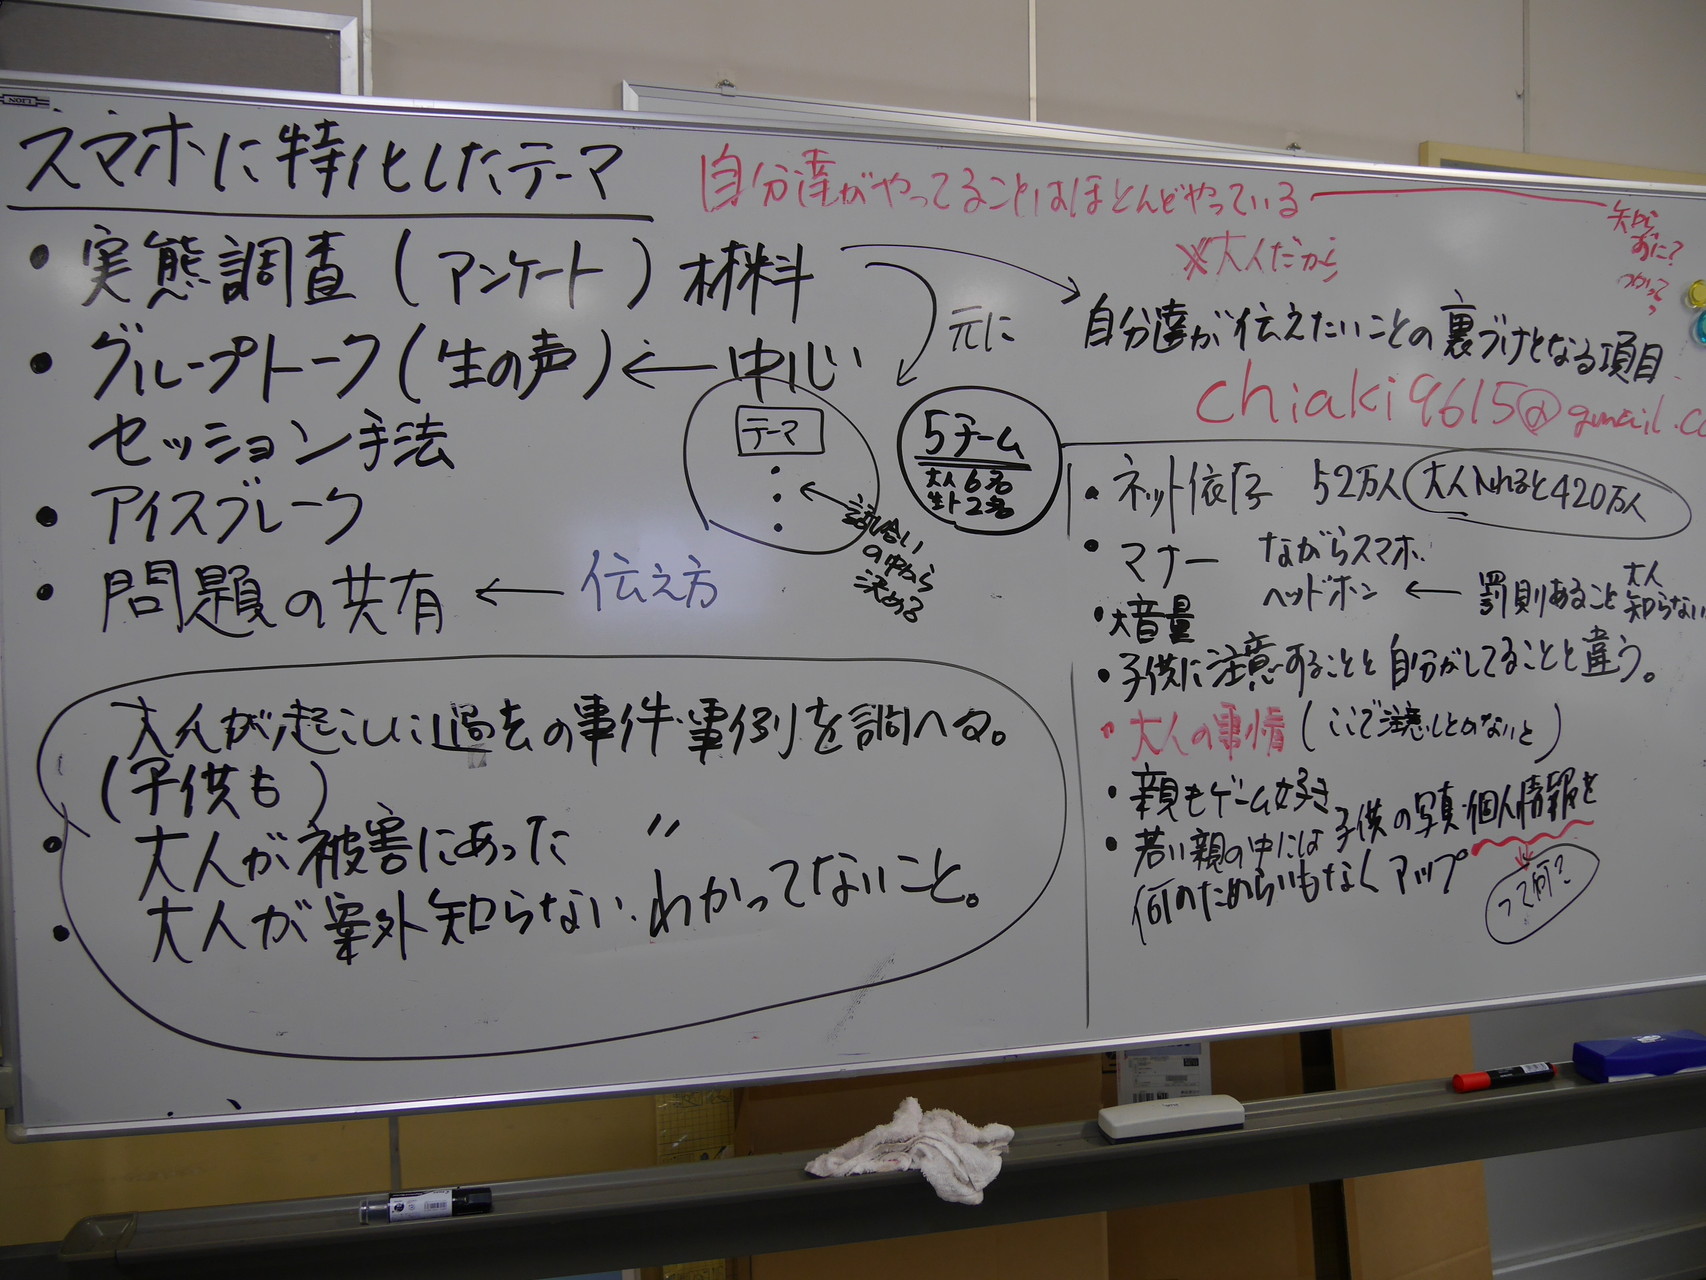 LION
スマホに特化したテーマ
・実態調査(アンケート)材料
・グループトーク(生の声)←中心
セッション手法
・アイスブレーク
・問題の共有 ← 伝え方
テーマ
話合い
の中から
決める
元に
5チーム
大人6名
生ト2名
大人が起こした過去の事件・事例を調べる。
(子供も)
・大人が被害にあった 〃
・大人が案外知らない・わかってないこと。
自分達がやってることはほとんどやっている
知らずに?
つかって?
※大人だから
自分達が伝えたいことの裏づけとなる項目
chiaki9615@gmail.co
・ネット依存 52万人(大人入れると420万人
・マナー ながらスマホ
ヘッドホン ← 罰則あること大人知らない
・大音量
・子供に注意することと自分がしてることと違う。
・大人の事情(ここで注意しとのないと)
・親もゲーム好き
・若い親の中には子供の写真・個人情報を
何のためらいもなくアップ
って何?